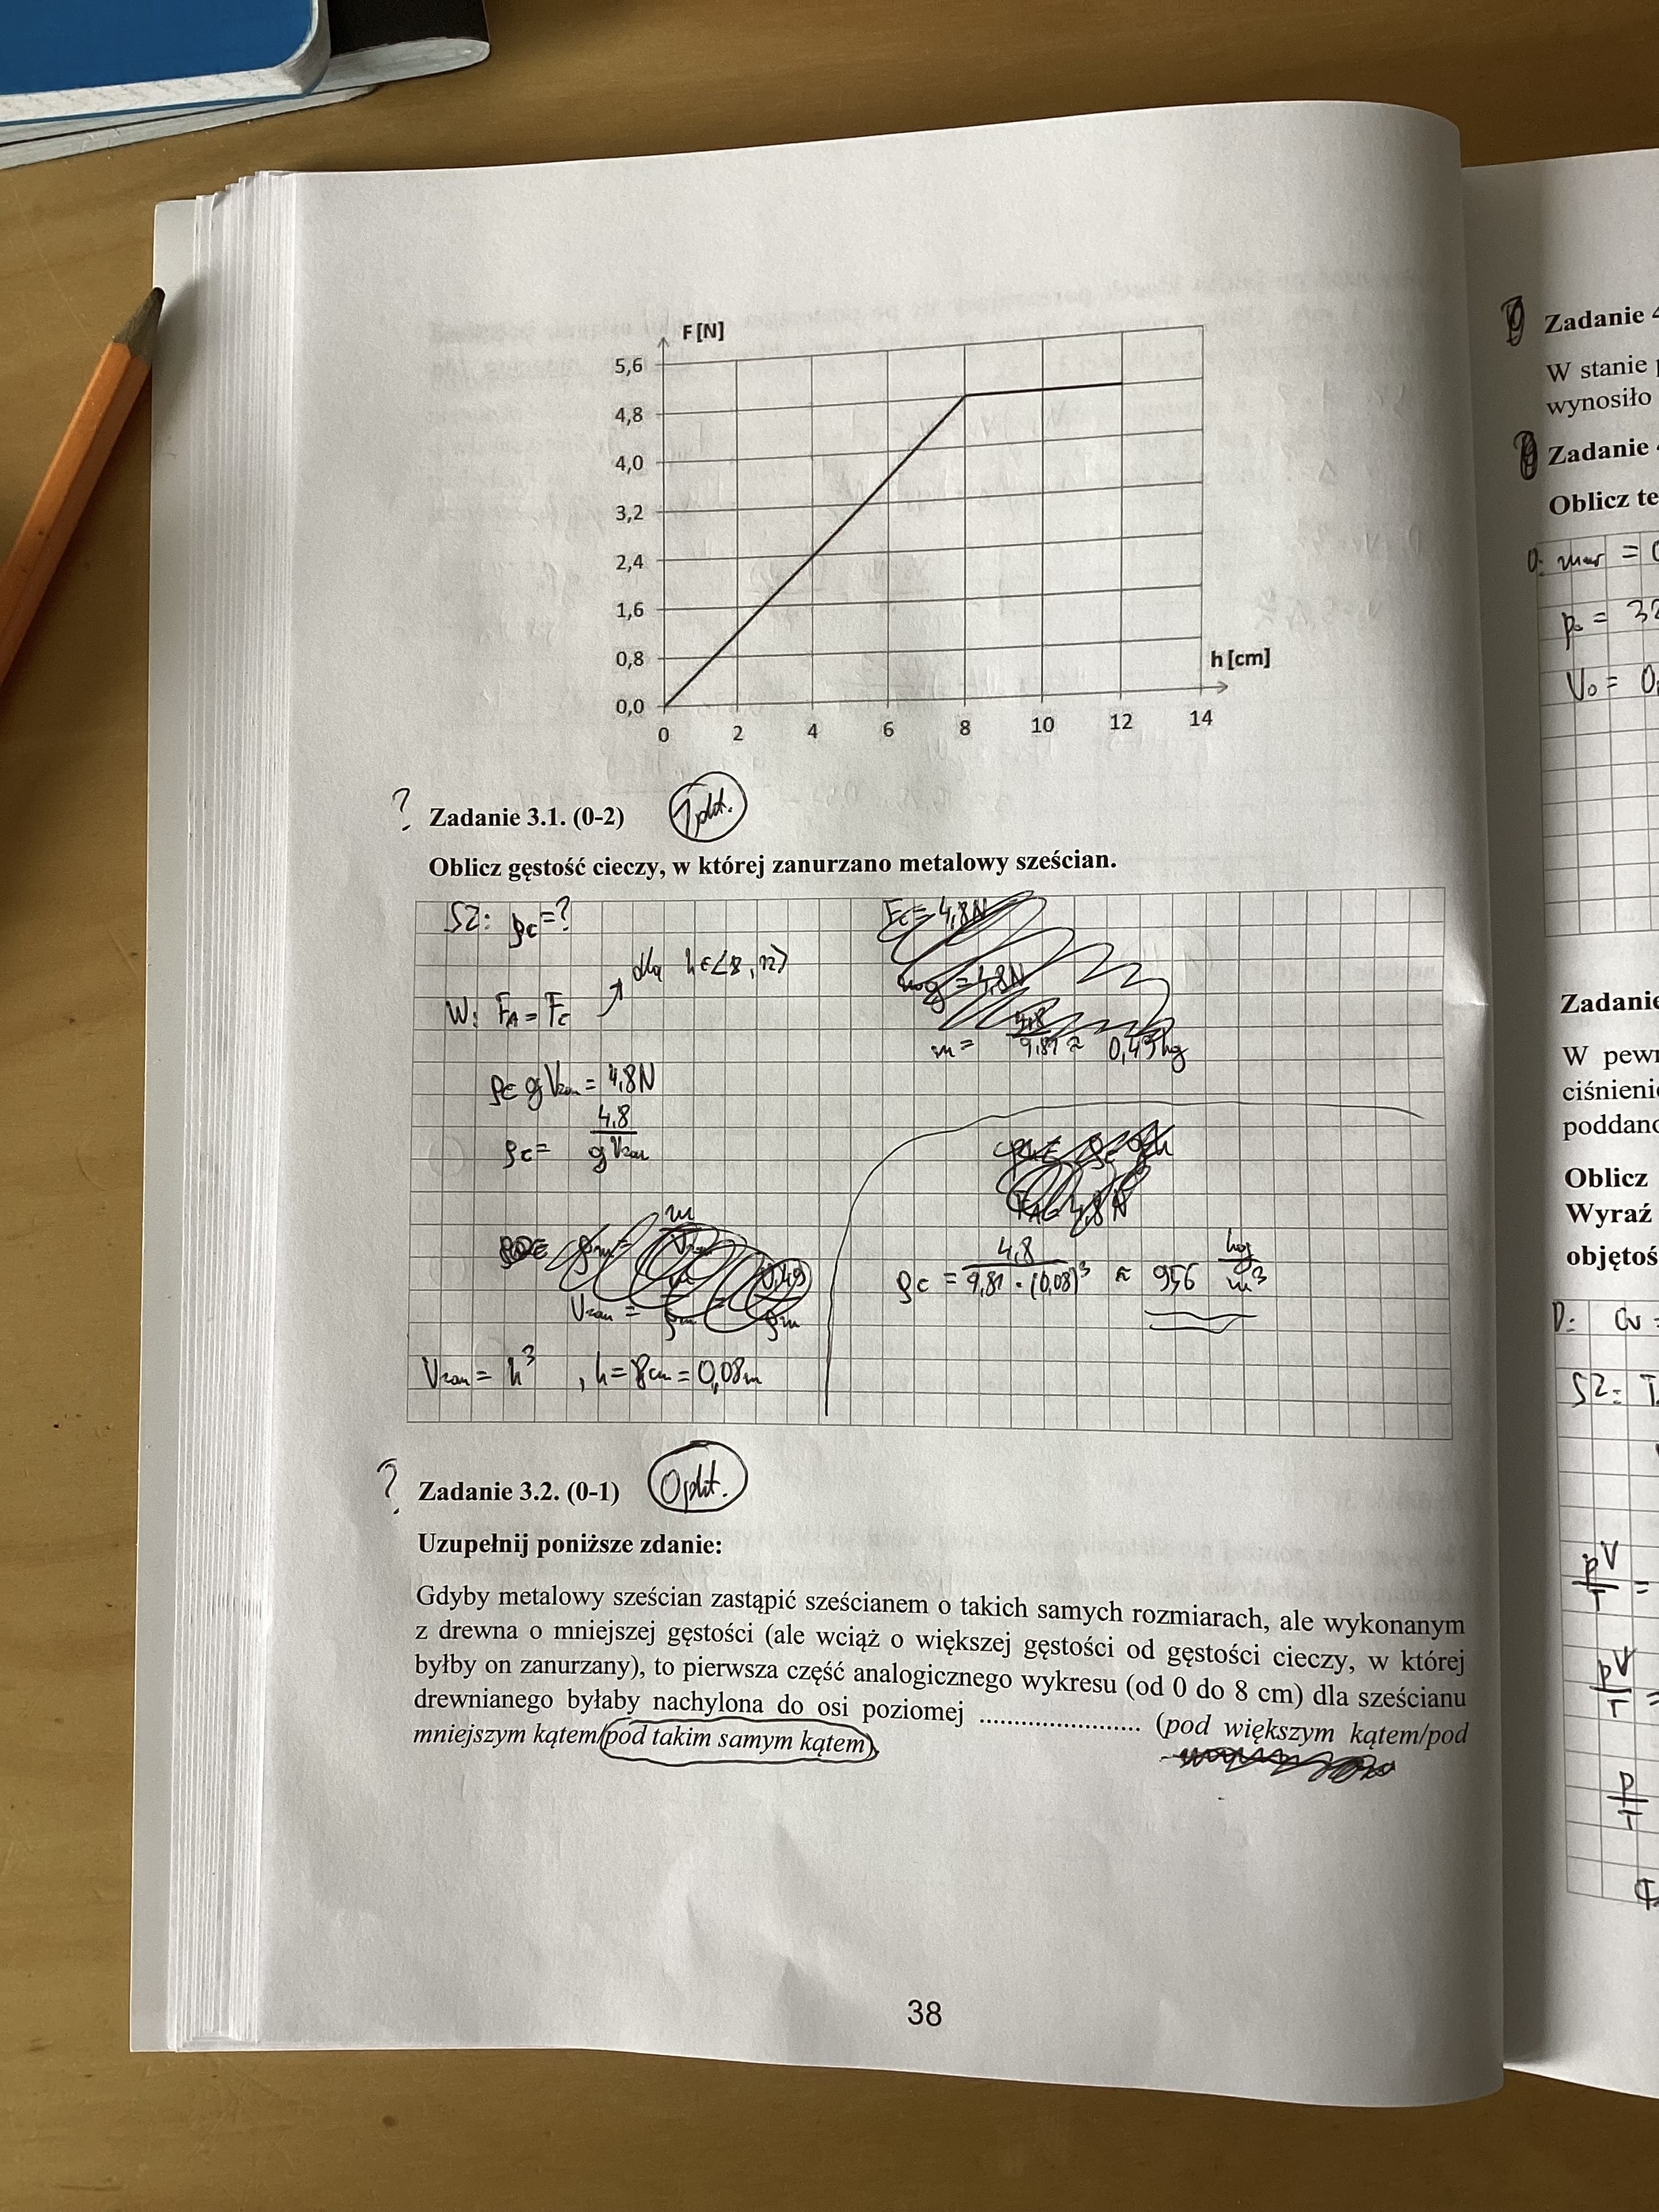 F [N]
5,6
4,8
4,0
3,2
2,4
1,6
0,8
0,0
h [cm]
0 2 4 6 8 10 12 14
? Zadanie 3.1. (0-2) 1 pkt.
Oblicz gęstość cieczy, w której zanurzano metalowy sześcian.
SZ: ρc = ?
dla h∈<8,12>
W: FA = Fc
ρc g Vzan = 4,8N
ρc = 4,8 / g Vzan
Vzan = h³ , h = 8cm = 0,08m
Fc = 4,8N
m = 4,8 / 9,81 ≈ 0,49 kg
ρc = 4,8 / 9,81 · (0,08)³ ≈ 956 kg/m³
? Zadanie 3.2. (0-1) 0 pkt.
Uzupełnij poniższe zdanie:
Gdyby metalowy sześcian zastąpić sześcianem o takich samych rozmiarach, ale wykonanym
z drewna o mniejszej gęstości (ale wciąż o większej gęstości od gęstości cieczy, w której
byłby on zanurzany), to pierwsza część analogicznego wykresu (od 0 do 8 cm) dla sześcianu
drewnianego byłaby nachylona do osi poziomej ........................ (pod większym kątem/pod
mniejszym kątem/pod takim samym kątem).
38
Zadanie 4
W stanie
wynosiło
Zadanie
Oblicz te
p₀ = 32
V₀ = 0,
Zadanie
W pewn
ciśnieni
poddano
Oblicz
Wyraź
objętoś
D: Cv =
SZ: T
pV/T =
pV/T =
p/T